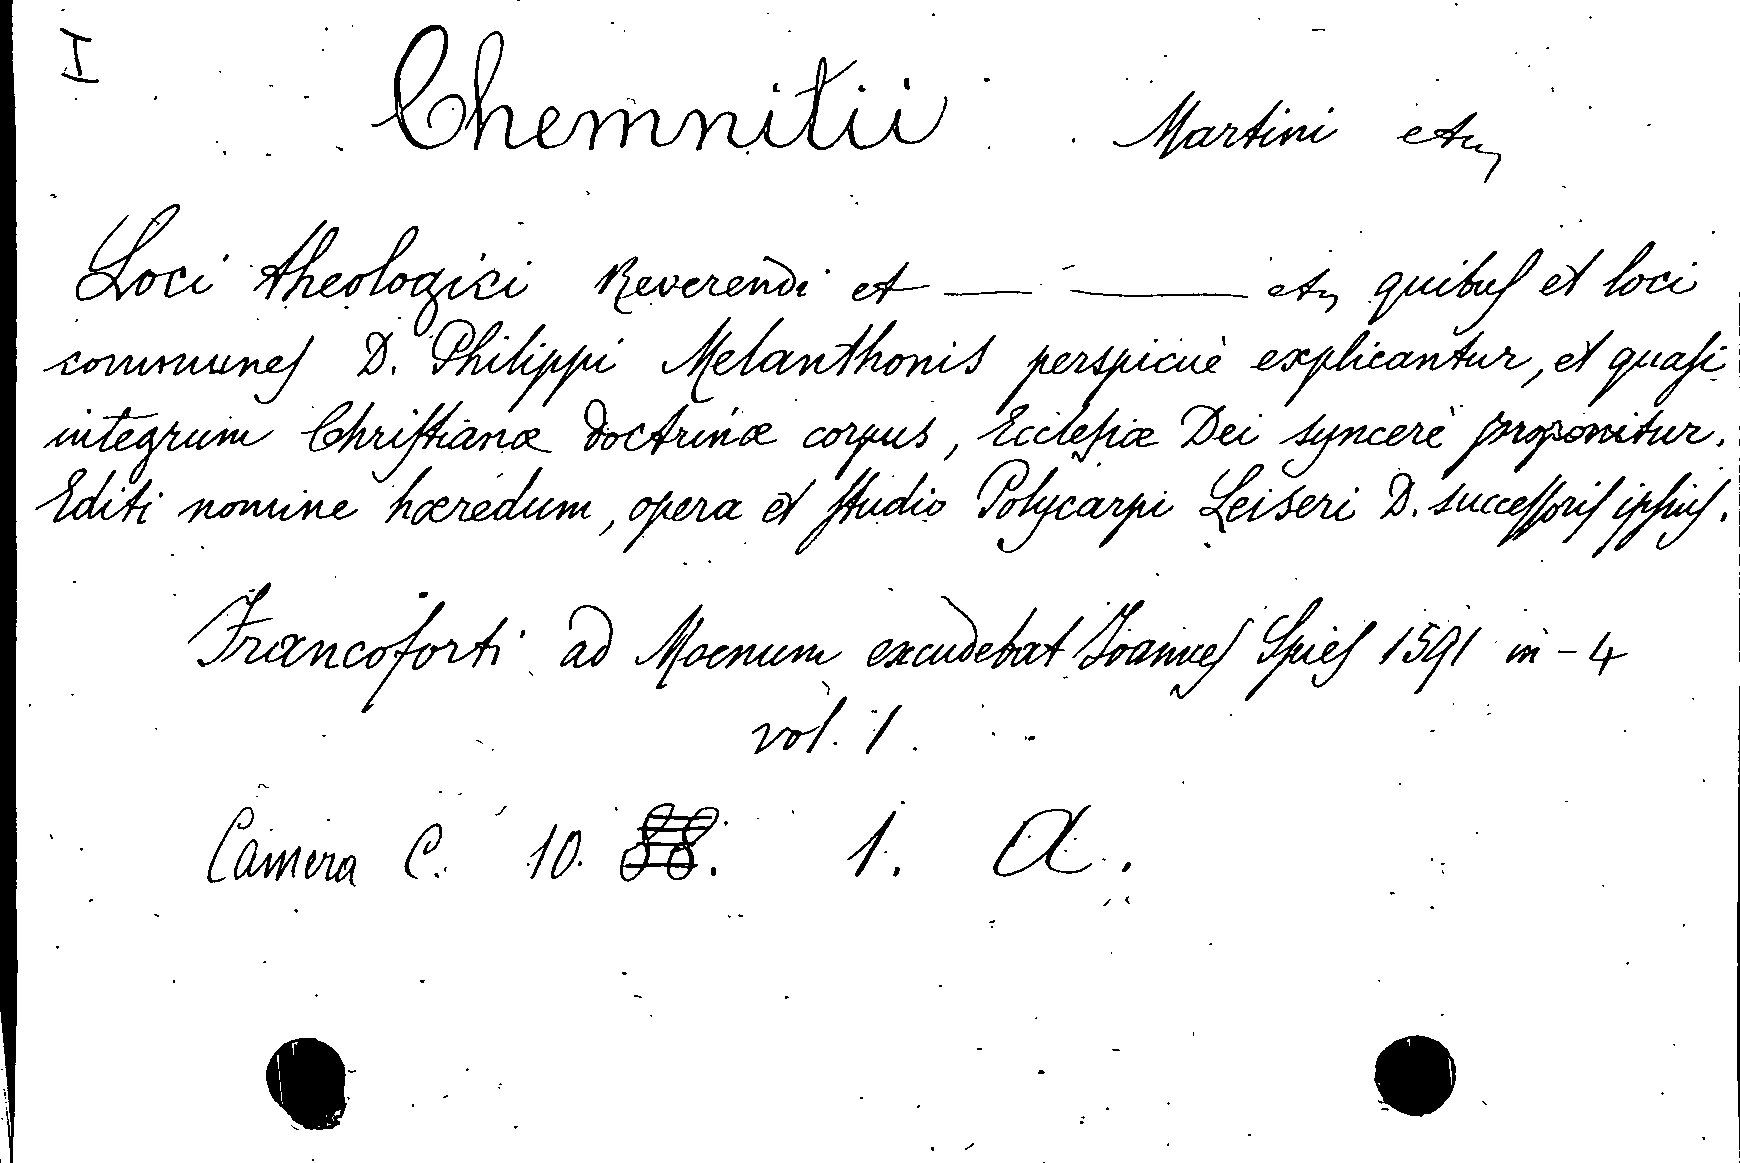 I
Chemnitii Martini etc
Loci theologici Reverendi et — — etc quibus et loci
communes D. Philippi Melanthonis perspicuè explicantur, et quasi
integrum Christianæ doctrinæ corpus, Ecclesiæ Dei syncerè proponitur.
Editi nomine hæredum, opera et studio Polycarpi Leiseri D. successoris ipsius.
Francoforti ad Moenum excudebat Joannes Spies 1591 in-4
vol. 1.
Camera C. 10. 88. 1. A.